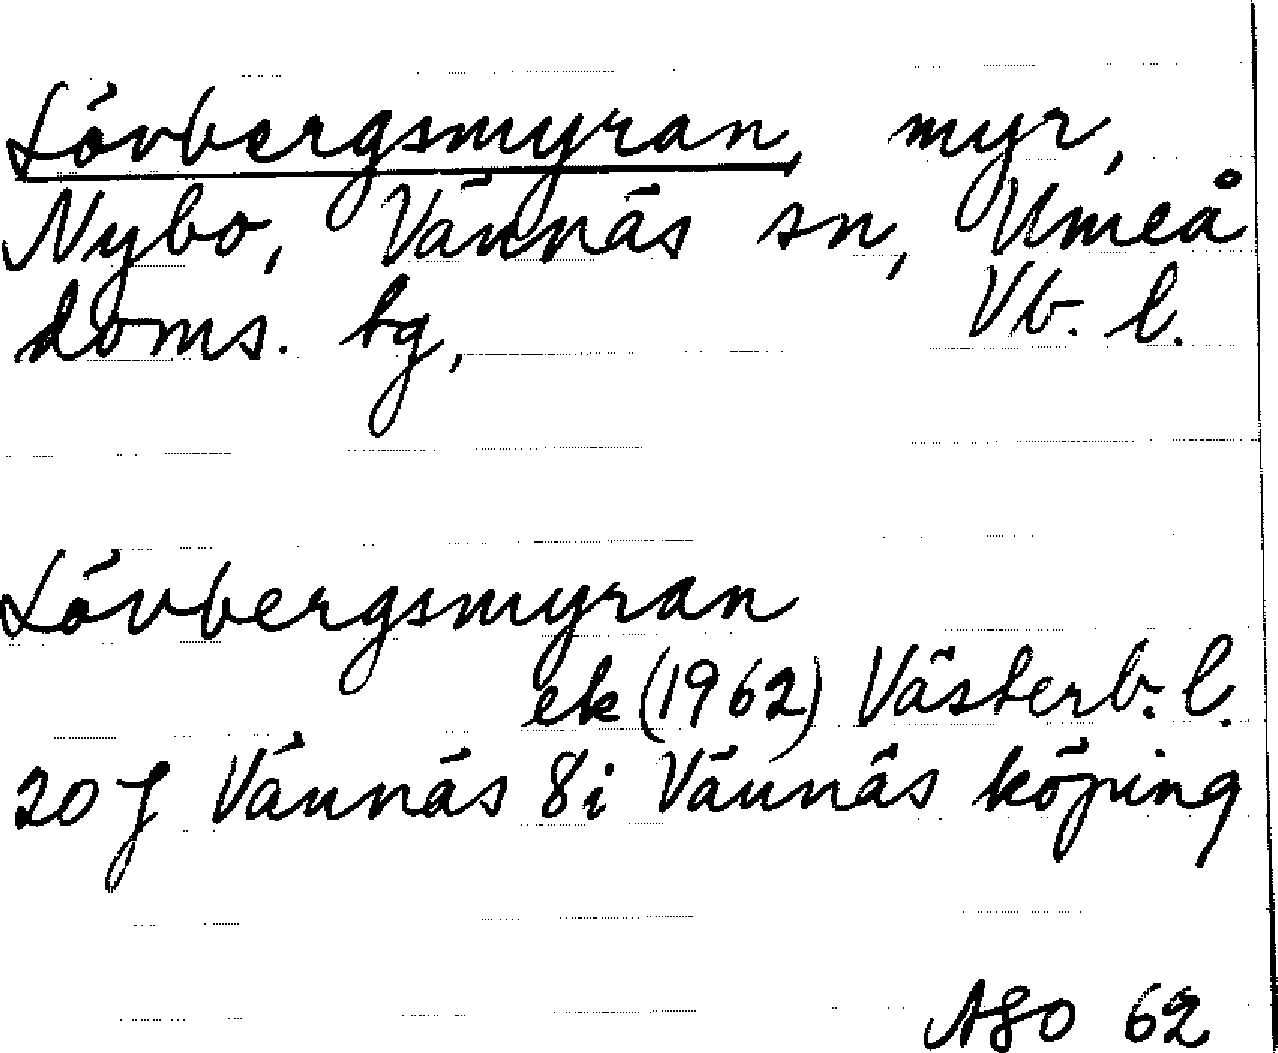 Lövbergsmyran, myr,
Nybo, Vännäs sn, Umeå
doms. tg, Vb. l.
Lövbergsmyran
ek (1962) Västerb. l.
20 J Vännäs 8i Vännäs köping
ASO 62